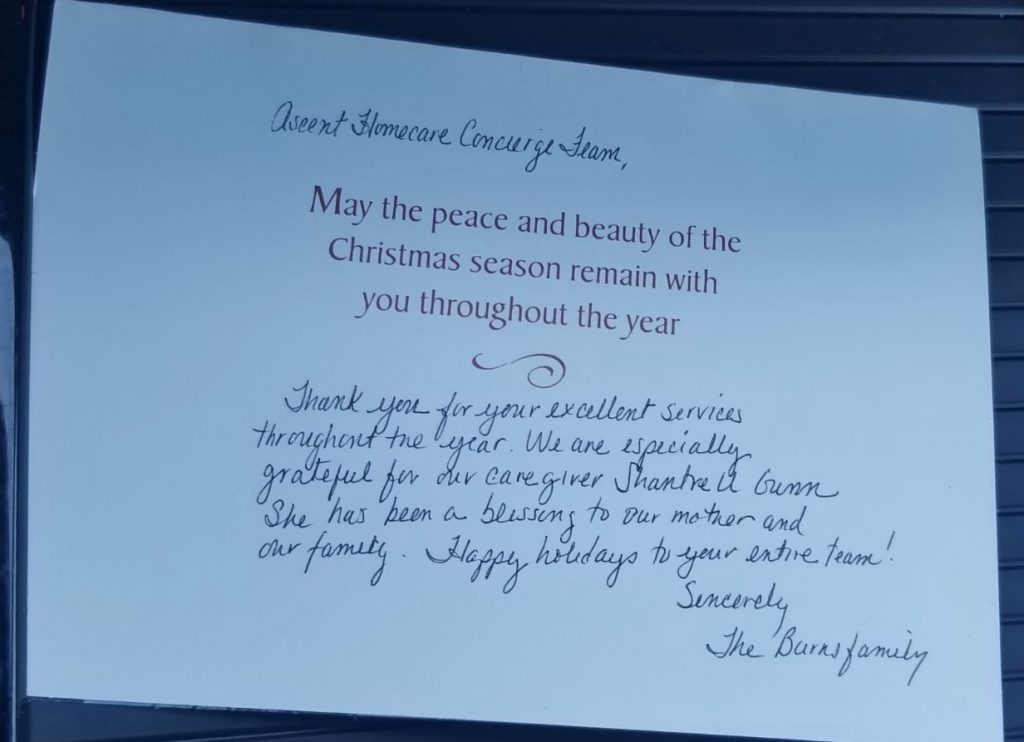 Ascent Homecare Concierge Team,
May the peace and beauty of the
Christmas season remain with
you throughout the year
Thank you for your excellent services
throughout the year. We are especially
grateful for our caregiver Shantrell Gunn
She has been a blessing to our mother and
our family. Happy holidays to your entire team!
Sencerely
The Burns family